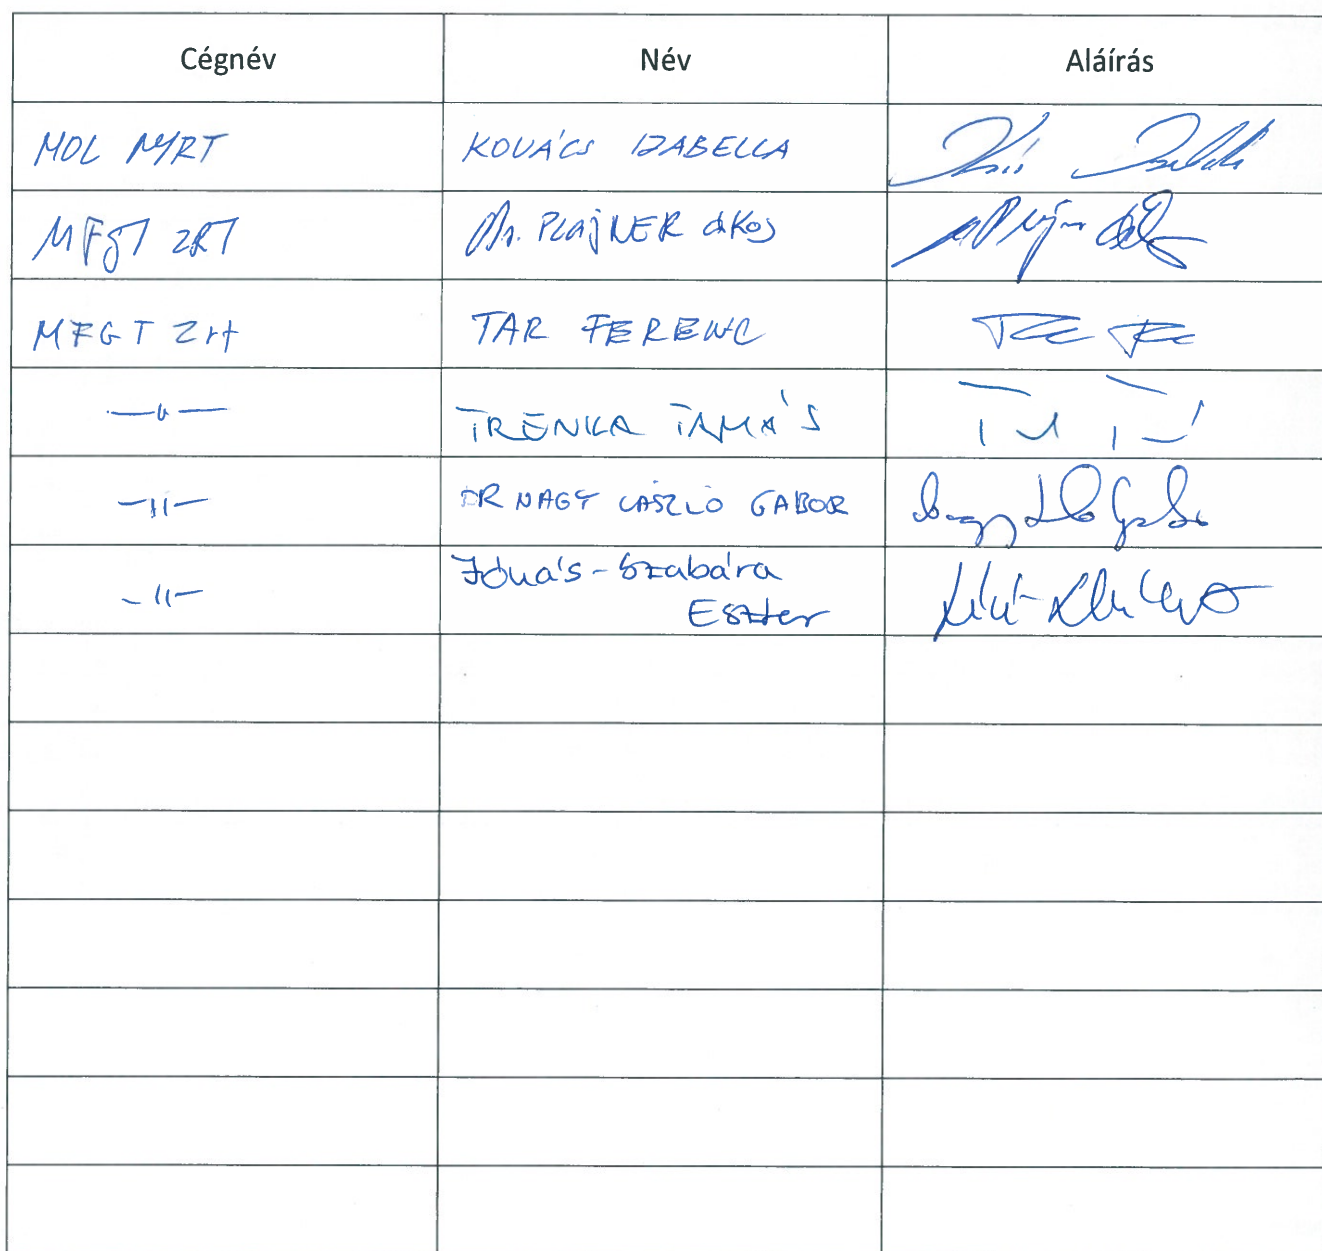 Cégnév Név Aláírás
MOL NYRT KOVÁCS IZABELLA
MFGT ZRT Dr. PLAJNER ÁKOS
MFGT Zrt TAR FERENC
—"— TRENKA TAMÁS
—"— DR NAGY LÁSZLÓ GÁBOR
—"— Jónás-Szabára
Eszter